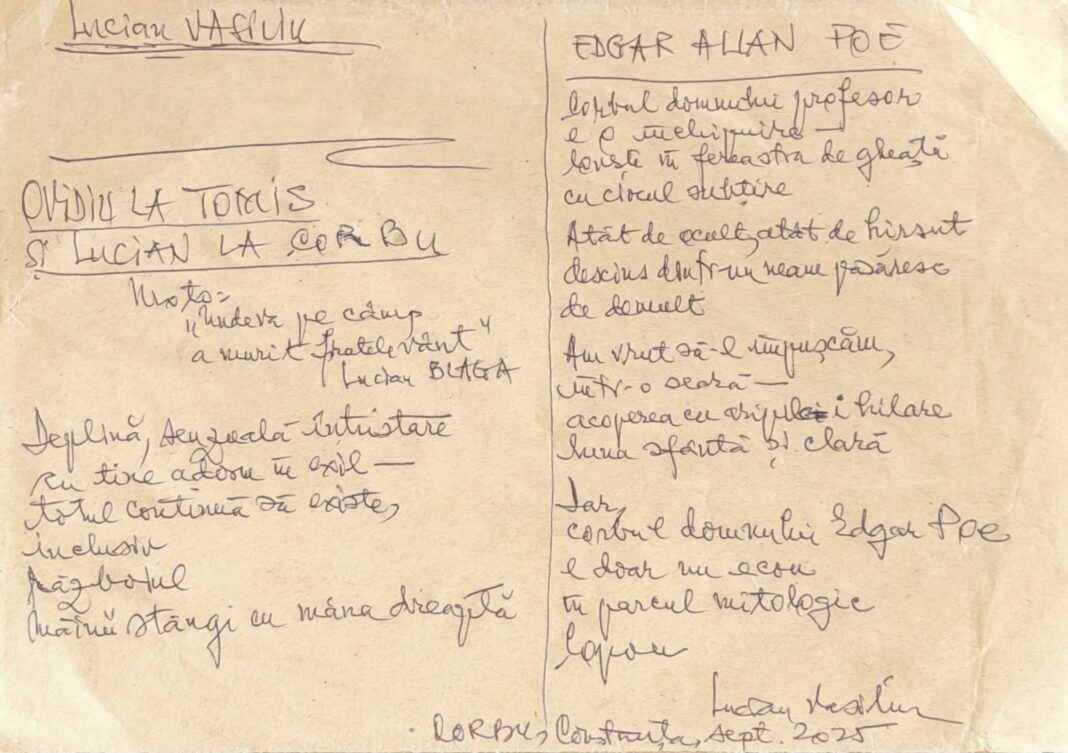 Lucian VASILIU
OVIDIU LA TOMIS
ȘI LUCIAN LA CORBU
Moto:
„Undeva pe câmp
a murit fratele vânt"
Lucian BLAGA
Deplină, senzuală întristare
cu tine adorm în exil —
totul continuă să existe,
inclusiv
războiul
mâinii stângi cu mâna dreaptă
EDGAR ALLAN POE
Corbul domnului profesor
e o închipuire —
lovește în fereastra de gheață
cu ciocul subțire
Atât de ocult, atât de hirsut
descins dintr-un neam păsăresc
de demult
Am vrut să-l împușcăm,
într-o seară —
acoperea cu aripile-i hilare
luna sfântă și clară
Dar,
corbul domnului Edgar Poe
e doar un ecou
în parcul mitologic
Copou
Lucian Vasiliu
CORBU, Constanța, sept. 2025